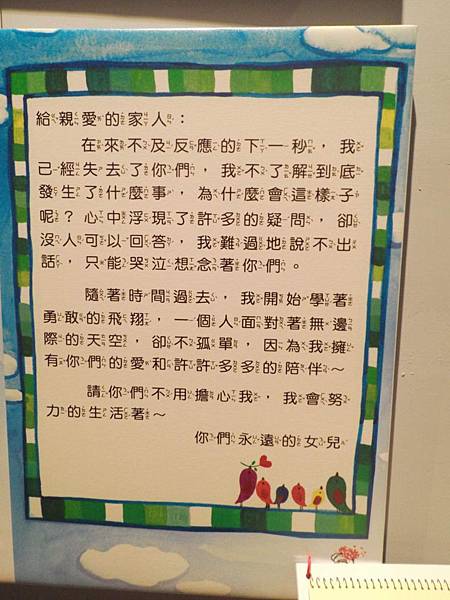 給親愛的家人：
在來不及反應的下一秒，我
已經失去了你們，我不了解到底
發生了什麼事，為什麼會這樣子
呢？心中浮現了許多的疑問，卻
沒人可以回答，我難過地說不出
話，只能哭泣想念著你們。
隨著時間過去，我開始學著
勇敢的飛翔，一個人面對著無邊
際的天空，卻不孤單，因為我擁
有你們的愛和許許多多的陪伴～
請你們不用擔心我，我會努
力的生活著～
你們永遠的女兒